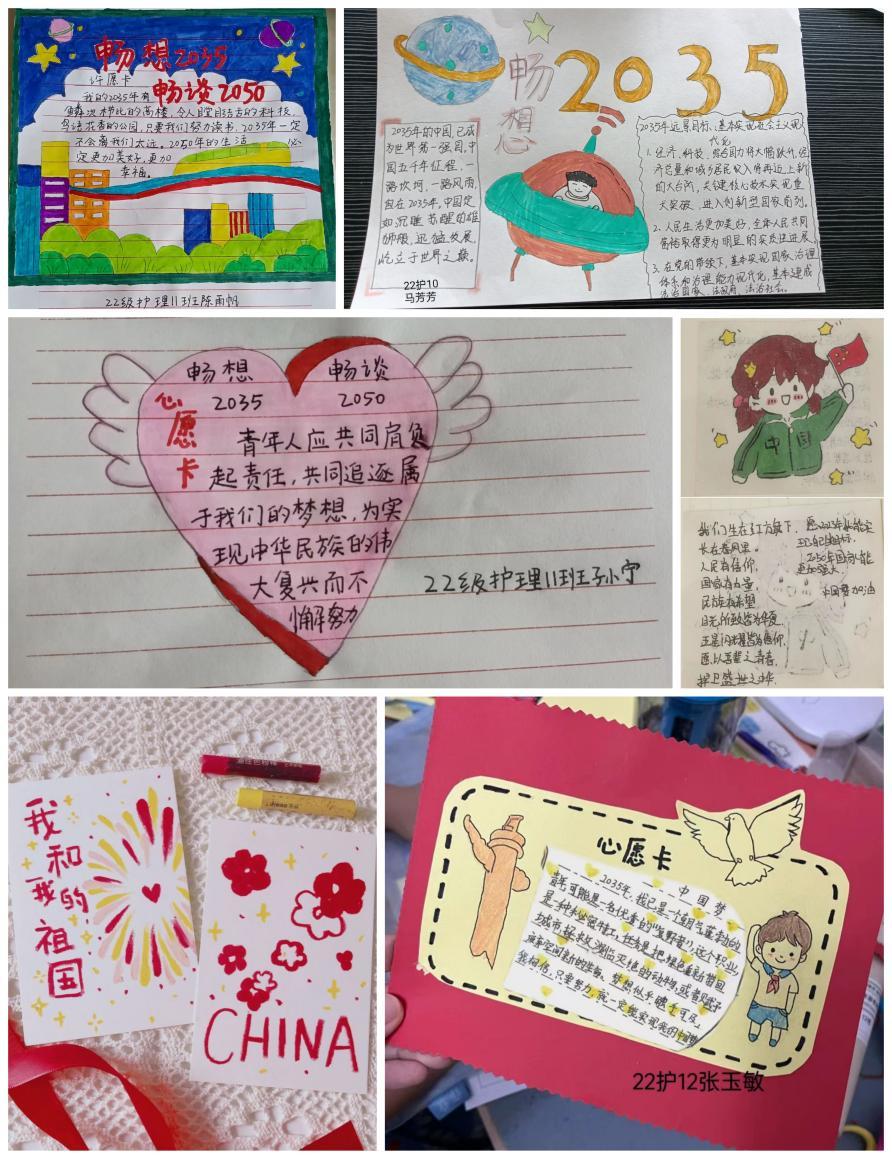 畅想2035
许愿卡
畅谈2050
我的2035年有
鳞次栉比的高楼，令人瞠目结舌的科技，
鸟语花香的公园，只要我们努力读书，2035年一定
不会离我们太远。2050年的生活
定更加美好，更加
幸福。
22级护理11班陈雨帆
畅想
2035
心愿
2035年的中国，已成
为世界第一强国，中
国五千年征程，一
路坎坷，一路风雨，
但在2035年，中国定
如沉睡苏醒的雄
狮般，迅猛发展，
屹立于世界之巅。
22护10
马芳芳
2035年远景目标，基本实现社会主义现
代化
1. 经济、科技、综合国力将大幅跃升，经
济总量和城乡居民收入将再迈上新
的大台阶，关键核心技术实现重
大突破，进入创新型国家前列。
2. 人民生活更加美好，全体人民共同
富裕取得更为明显的实质性进展
3. 在党的带领下，基本实现国家治理
体系和治理能力现代化，基本建成
法治国家、法治政府、法治社会。
畅想 畅谈
2035 2050
心愿卡
青年人应共同肩负
起责任，共同追逐属
于我们的梦想，为实
现中华民族的伟
大复兴而不
懈努力
22级护理11班王子小宁
中国
我们生在红旗下，
长在春风里。
人民有信仰，
国家有力量
民族有希望
目光所致皆为华夏，
五星闪耀皆为信仰，
愿以吾辈之青春，
护卫盛世之中华。
愿2035年我能实
现自己的目标，
2050年国家能
更加强大，
中国梦加油
我和我的祖国
CHINA
心愿卡
中国梦
2035年，我已是一个朝气蓬勃的
青年，可能是一名优秀的
城市，拯救濒临灭绝的动物，或者
我相信，只要努力，就一定能实现我的中国梦
22护12张玉敏